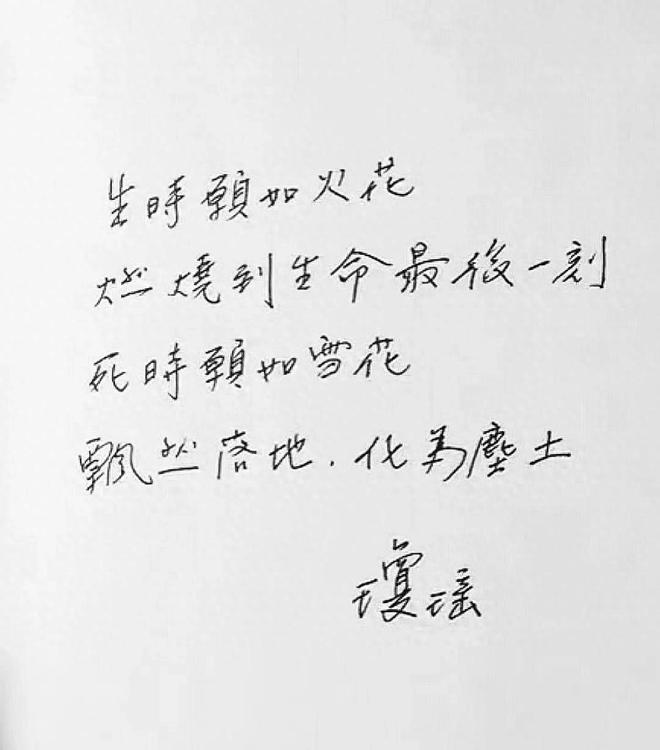 生時願如火花
燃燒到生命最後一刻
死時願如雪花
飄然落地.化為塵土
瓊瑤